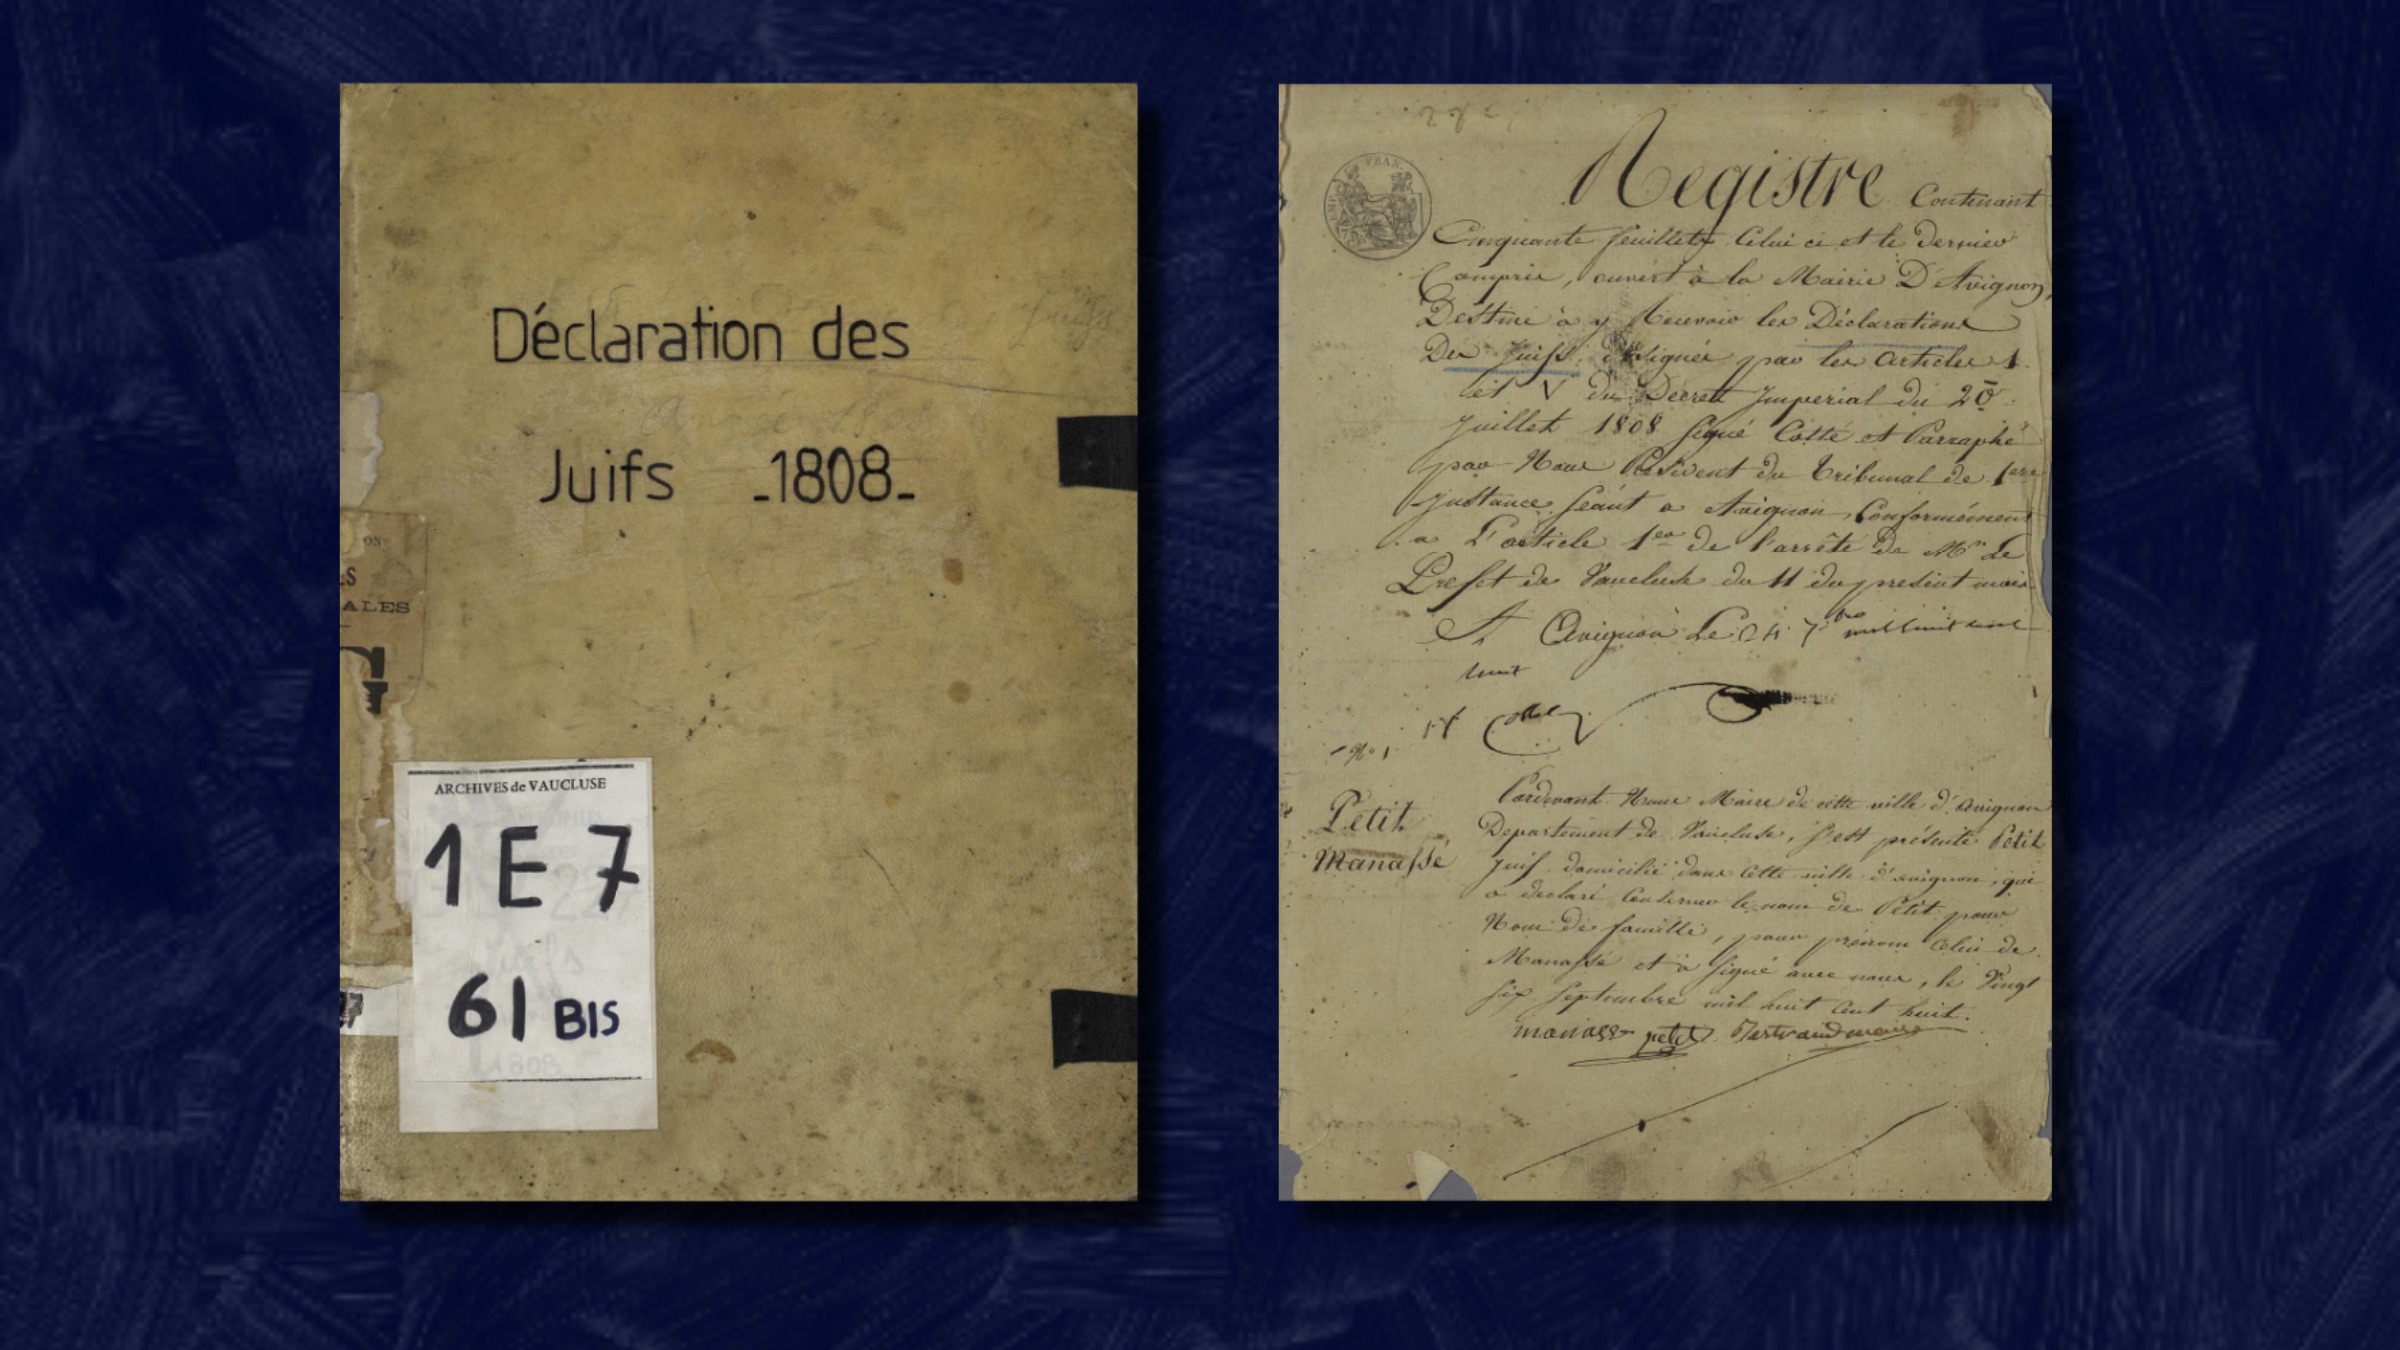 Déclaration des
Juifs -1808-
ON
ES
ALES
ARCHIVES de VAUCLUSE
1 E 7
61 BIS
EMP. FRAN.
Registre Contenant
Cinquante feuillets Celui ci et le dernier
Compris, ouvert à la Mairie D'Avignon,
Destiné à y Recevoir les Déclarations
Des Juifs désignés par les articles 1
et V du Décret Imperial du 20
Juillet 1808 signé Cotté et Parraphé
par Nous Président du Tribunal de 1ere
Instance séant a Avignon, Conformément
a L'article 1er de l'arrêté de Mr Le
Prefet de Vaucluse du 11 du present mois
A Avignon Le 24 7bre mil huit cent
huit
No 1
Petit
Manassé
Pardevant Nous Maire de cette ville d'avignon
Departement de Vaucluse, s'est présenté Petit
Juif, domicilié dans cette ville d'avignon, qui
a declaré Conserver le nom de Petit pour
Nom de famille, pour prénom Celui de
Manassé et a signé avec nous, le Vingt
six septembre mil huit cent huit.
manasse petit Bertrand maire